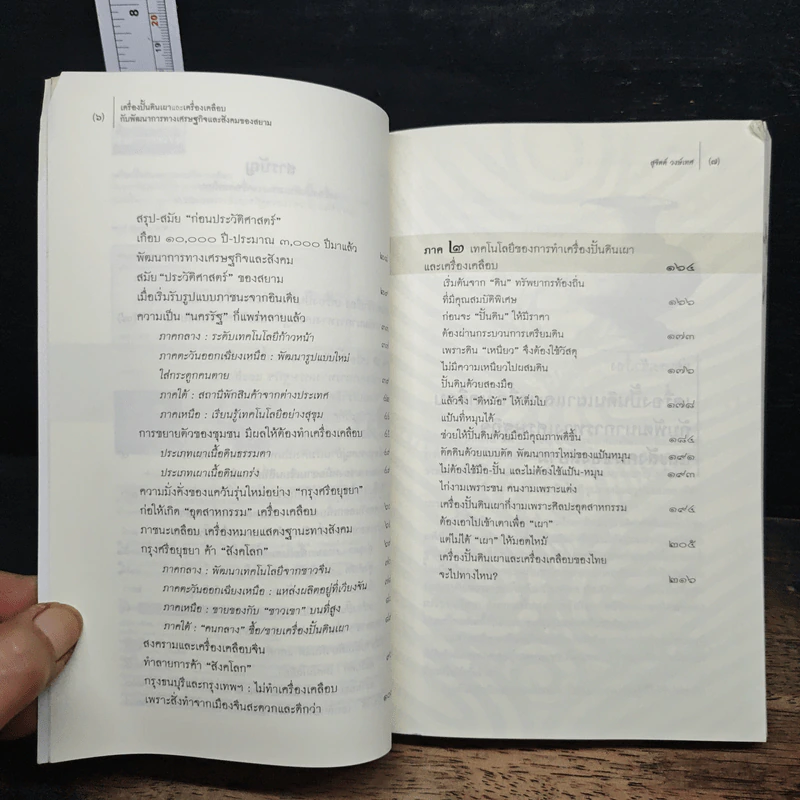 8
20
19
(๖)
เครื่องปั้นดินเผาและเครื่องเคลือบ
กับพัฒนาการทางเศรษฐกิจและสังคมของสยาม
สรุป-สมัย "ก่อนประวัติศาสตร์"
เกือบ ๑๐,๐๐๐ ปี-ประมาณ ๓,๐๐๐ ปีมาแล้ว
พัฒนาการทางเศรษฐกิจและสังคม
สมัย "ประวัติศาสตร์" ของสยาม
เมื่อเริ่มรับรูปแบบภาชนะจากอินเดีย
ความเป็น "นครรัฐ" ก็แพร่หลายแล้ว
ภาคกลาง : ระดับเทคโนโลยีก้าวหน้า
ภาคตะวันออกเฉียงเหนือ : พัฒนารูปแบบใหม่
ใส่กระดูกคนตาย
ภาคใต้ : สถานีพักสินค้าจากต่างประเทศ
ภาคเหนือ : เรียนรู้เทคโนโลยีอย่างสุขุม
การขยายตัวของชุมชน มีผลให้ต้องทำเครื่องเคลือบ
ประเภทเผาเนื้อดินธรรมดา
ประเภทเผาเนื้อดินแกร่ง
ความมั่งคั่งของแคว้นรุ่นใหม่อย่าง "กรุงศรีอยุธยา"
ก่อให้เกิด "อุตสาหกรรม" เครื่องเคลือบ
ภาชนะเคลือบ เครื่องหมายแสดงฐานะทางสังคม
กรุงศรีอยุธยา ค้า "สังคโลก"
ภาคกลาง : พัฒนาเทคโนโลยีจากชาวจีน
ภาคตะวันออกเฉียงเหนือ : แหล่งผลิตอยู่ที่เวียงจัน
ภาคเหนือ : ขายของกับ "ชาวเขา" บนที่สูง
ภาคใต้ : "คนกลาง" ซื้อ/ขายเครื่องปั้นดินเผา
สงครามและเครื่องเคลือบจีน
ทำลายการค้า "สังคโลก"
กรุงธนบุรีและกรุงเทพฯ : ไม่ทำเครื่องเคลือบ
เพราะสั่งทำจากเมืองจีนสะดวกและดีกว่า
สุจิตต์ วงษ์เทศ (๗)
ภาค ๒ เทคโนโลยีของการทำเครื่องปั้นดินเผา
และเครื่องเคลือบ ๑๖๔
เริ่มต้นจาก "ดิน" ทรัพยากรท้องถิ่น
ที่มีคุณสมบัติพิเศษ ๑๖๖
ก่อนจะ "ปั้นดิน" ให้มีราคา
ต้องผ่านกระบวนการเตรียมดิน ๑๗๓
เพราะดิน "เหนียว" จึงต้องใช้วัสดุ
ไม่มีความเหนียวไปผสมดิน ๑๗๖
ปั้นดินด้วยสองมือ
แล้วจึง "ตีหม้อ" ให้เต็มใบ ๑๗๘
แป้นที่หมุนได้
ช่วยให้ปั้นดินด้วยมือมีคุณภาพดีขึ้น ๑๘๔
ตัดดินด้วยแบบตัด พัฒนาการใหม่ของแป้นหมุน ๑๙๑
ไม่ต้องใช้มือ-ปั้น และไม่ต้องใช้แป้น-หมุน ๑๙๓
ไก่งามเพราะขน คนงามเพราะแต่ง
เครื่องปั้นดินเผาก็งามเพราะศิลปะอุตสาหกรรม ๑๙๔
ต้องเอาไปเข้าเตาเพื่อ "เผา"
แต่ไม่ได้ "เผา" ให้มอดไหม้ ๒๐๕
เครื่องปั้นดินเผาและเครื่องเคลือบของไทย
จะไปทางไหน? ๒๑๖